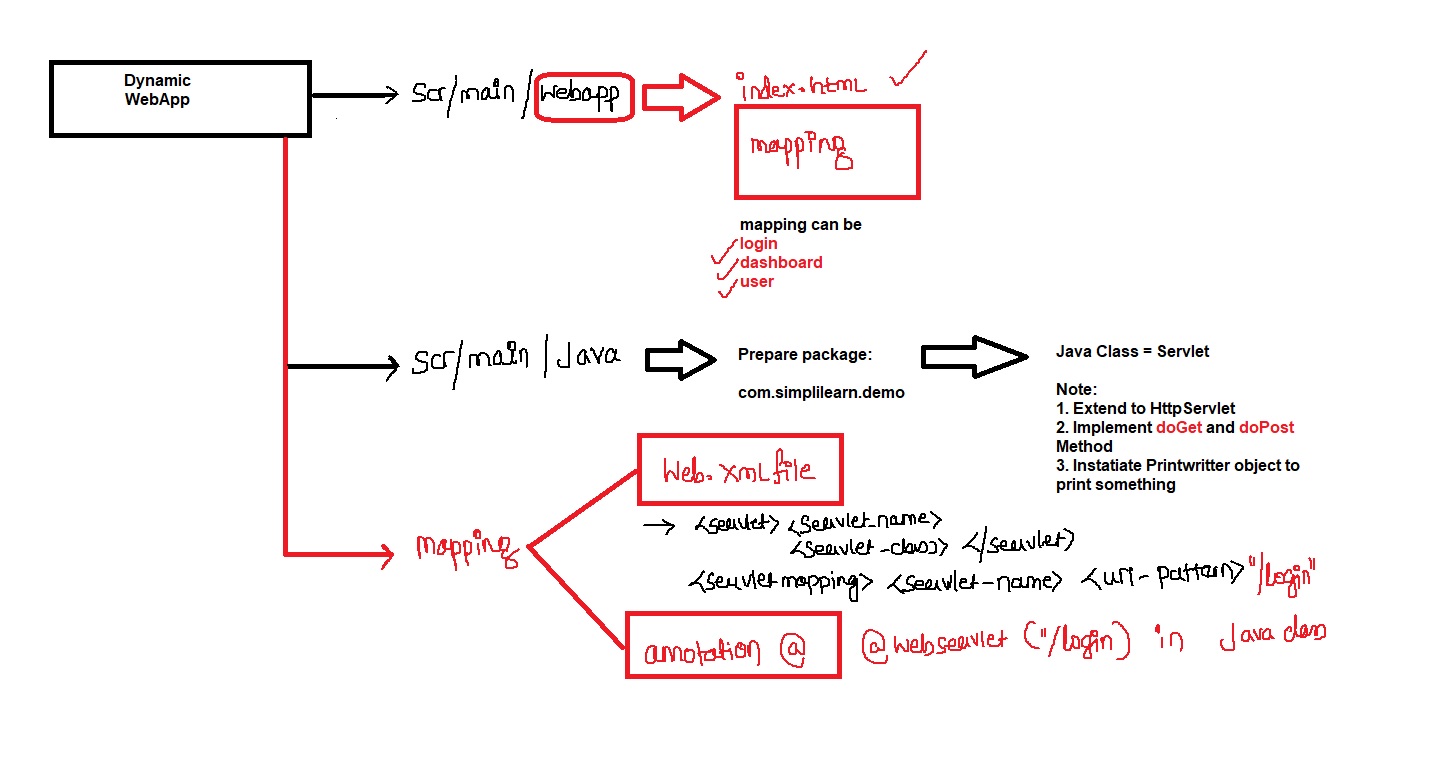 Dynamic
WebApp
Scr/main/webapp
index.html
mapping
mapping can be
login
dashboard
user
Scr/main/Java
Prepare package:
com.simplilearn.demo
Java Class = Servlet
Note:
1. Extend to HttpServlet
2. Implement doGet and doPost
Method
3. Instatiate Printwritter object to
print something
Web.xml file
<servlet> <Servlet-name>
<Servlet-class> </servlet>
mapping
<servlet mapping> <servlet-name> <url-pattarn> "/login"
annotation @
@webservlet ("/login) in Java class